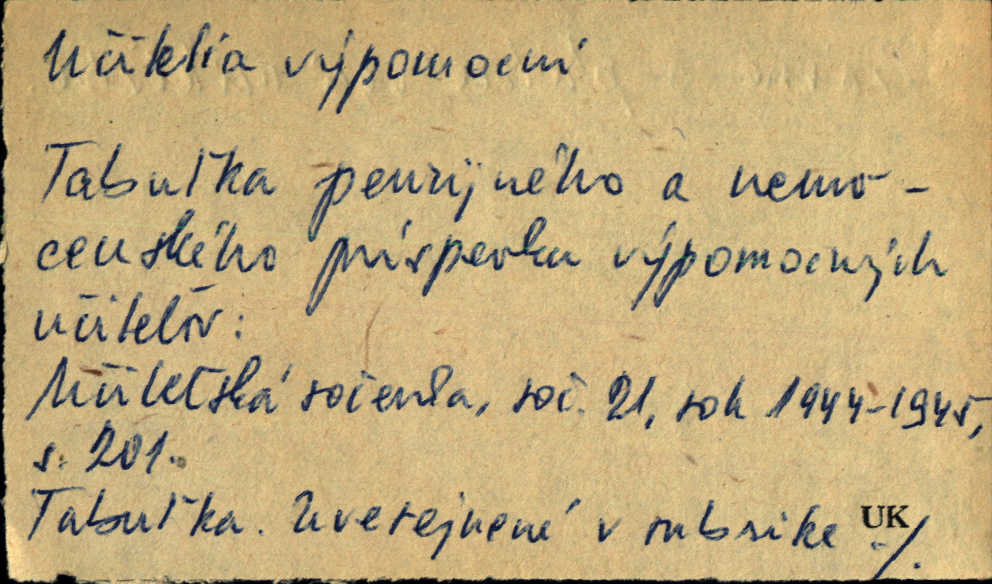 Učitelia výpomocní
Tabuľka penzijného a nemo-
cenského príspevku výpomocných
učiteľov:
Učiteľská ročenka, roč. 21, rok 1944-1945,
s. 201.
Tabuľka. Uverejnené v rubrike UK ./.